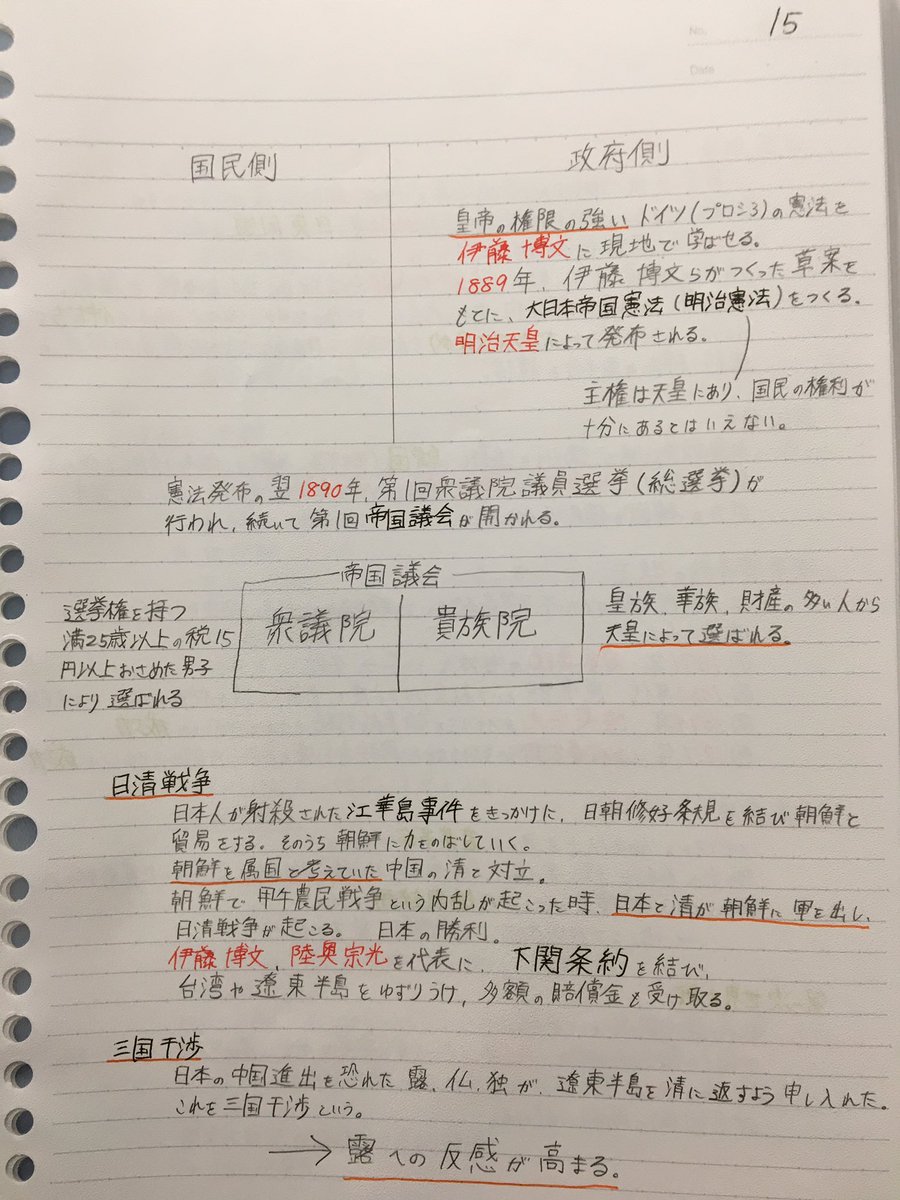 No. 15
Date
国民側
政府側
皇帝の権限の強いドイツ(プロシア)の憲法を
伊藤博文に現地で学ばせる。
1889年、伊藤博文らがつくった草案を
もとに、大日本帝国憲法(明治憲法)をつくる。
明治天皇によって発布される。
主権は天皇にあり、国民の権利が
十分にあるとはいえない。
憲法発布の翌1890年、第1回衆議院議員選挙(総選挙)が
行われ、続いて第1回帝国議会が開かれる。
帝国議会
衆議院
貴族院
選挙権を持つ
満25歳以上の税15
円以上おさめた男子
により選ばれる
皇族、華族、財産の多い人から
天皇によって選ばれる。
日清戦争
日本人が射殺された江華島事件をきっかけに、日朝修好条規を結び朝鮮と
貿易をする。そのうち朝鮮に力をのばしていく。
朝鮮を属国と考えていた中国の清と対立。
朝鮮で甲午農民戦争という内乱が起こった時、日本と清が朝鮮に軍を出し、
日清戦争が起こる。 日本の勝利。
伊藤博文、陸奥宗光を代表に、下関条約を結び、
台湾や遼東半島をゆずりうけ、多額の賠償金も受け取る。
三国干渉
日本の中国進出を恐れた露、仏、独が、遼東半島を清に返すよう申し入れた。
これを三国干渉という。
→ 露への反感が高まる。